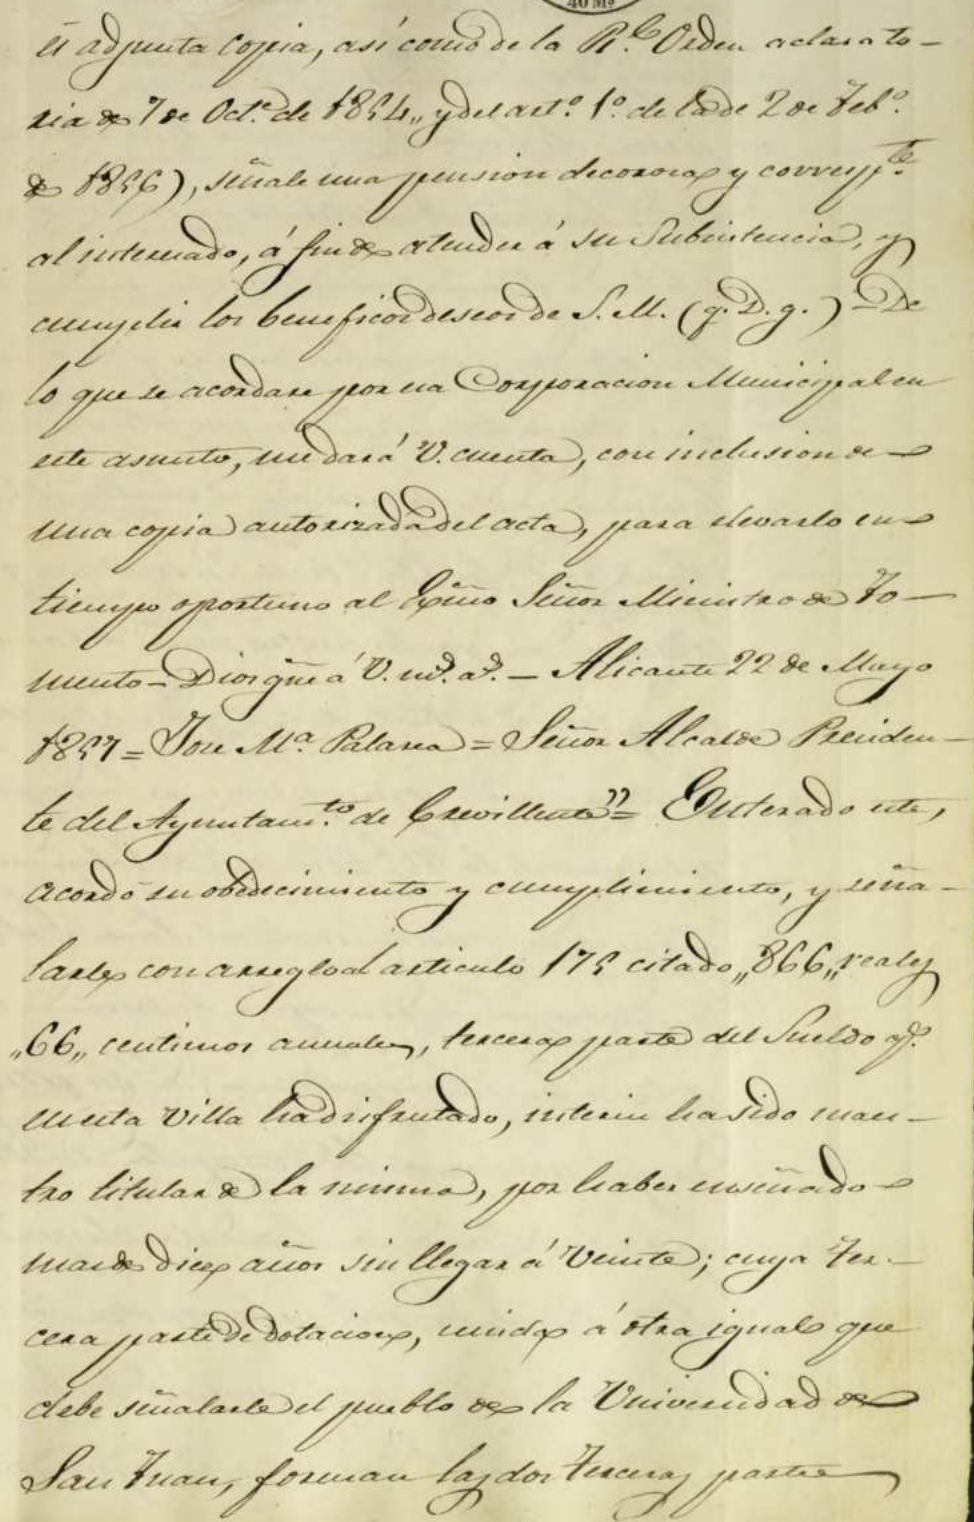 40 Ms
és adjunta copia, así como de la Rl. Orden aclarato-
ria de 7 de Octe. de 1854,, y del art.º 1.º de la de 2 de Feb.º
de 1856), señale una pension decorosa y corresp.te
al interesado, á fin de atender á su Subsistencia, y
cumplir los beneficos deseos de S. M. (q. D. g.) - De
lo que se acordare por esa Corporacion Municipal en
este asunto, me dará V. cuenta, con inclusion de
una copia autorizada del acta, para elevarlo en
tiempo oportuno al Exmo Señor Ministro de Fo-
mento - Dios gue á V. ms. as. - Alicante 22 de Mayo
1857 = Jose Ma. Palarea = Señor Alcalde Presiden-
te del Ayuntam.to de Crevillente" = Enterado este,
acordó su obedecimiento y cumplimiento, y seña-
larle con arreglo al articulo 175 citado ,,866,, reales
,,66,, centimos anuales, tercera parte del Sueldo q.e
en esta Villa ha disfrutado, interin ha sido maes-
tro titular de la misma, por haber enseñado
mas de diez años sin llegar á Veinte; cuya ter-
cera parte de dotacion, unida á otra igual que
debe señalarle el pueblo de la Universidad de
San Juan, forman las dos terceras partes